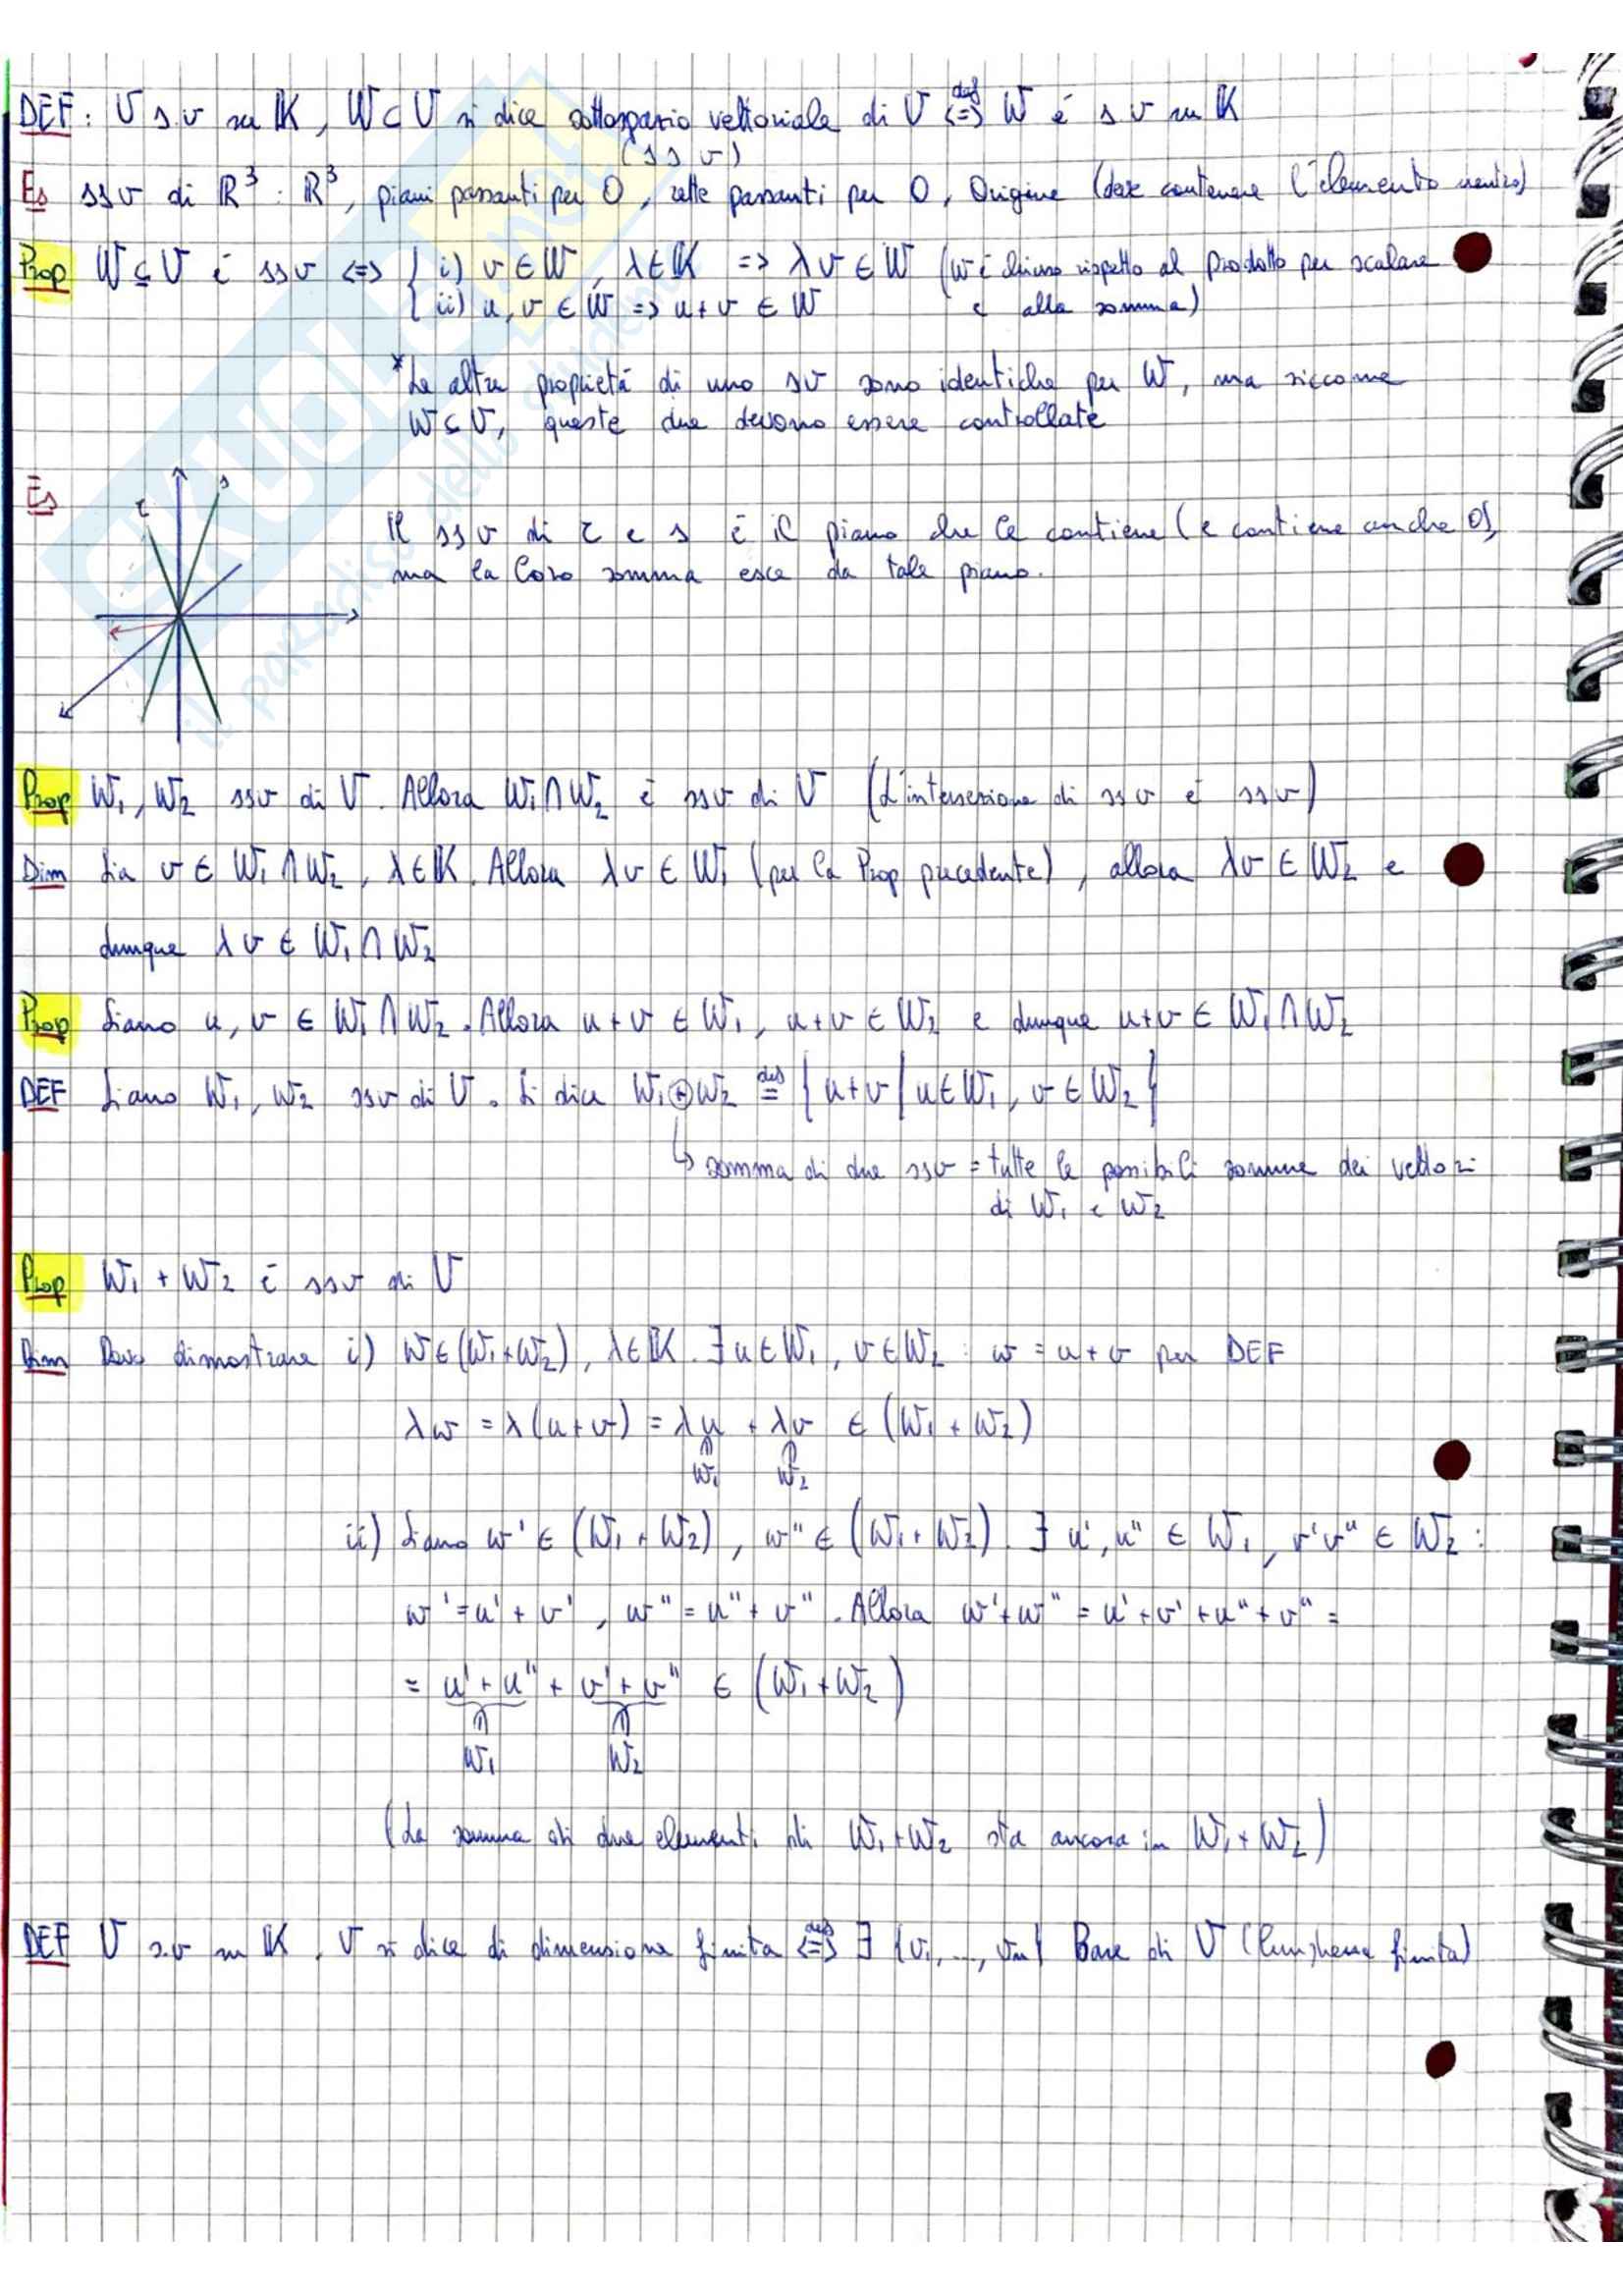 DEF: V s.v su K, W⊂V si dice sottospazio vettoriale di V <=> def W é s v su K
(ssv)
Es ssv di R³: R³, piani passanti per O, rette passanti per O, Origine (deve contenere l'elemento neutro)
Prop W⊆V é ssv <=> { i) v∈W, λ∈K => λv∈W (W é chiuso rispetto al prodotto per scalare
{ ii) u,v∈W => u+v∈W e alla somma)
*Le altre proprietá di uno sv sono identiche per W, ma siccome
W⊆V, queste due devono essere controllate
Es
r s
Il ssv di r e s é il piano che le contiene (e contiene anche O),
ma la loro somma esce da tale piano.
Prop W₁, W₂ ssv di V. Allora W₁∩W₂ é ssv di V (L'intersezione di ssv é ssv)
Dim Sia v∈W₁∩W₂, λ∈K. Allora λv∈W₁ (per la Prop precedente), allora λv∈W₂ e
dunque λv∈W₁∩W₂
Prop Siano u, v∈W₁∩W₂. Allora u+v∈W₁, u+v∈W₂ e dunque u+v∈W₁∩W₂
DEF Siano W₁, W₂ ssv di V. Si dice W₁⊕W₂ def= {u+v | u∈W₁, v∈W₂}
↳ somma di due ssv = tutte le possibili somme dei vettori
di W₁ e W₂
Prop W₁+W₂ é ssv di V
Dim Devo dimostrare i) w∈(W₁+W₂), λ∈K. ∃u∈W₁, v∈W₂: w=u+v per DEF
λw = λ(u+v) = λu + λv ∈ (W₁+W₂)
W₁ W₂
ii) Siano w'∈(W₁+W₂), w''∈(W₁+W₂) ∃ u', u''∈W₁, v'v''∈W₂:
w'=u'+v', w''=u''+v''. Allora w'+w''=u'+v'+u''+v''=
= u'+u'' + v'+v'' ∈ (W₁+W₂)
W₁ W₂
(La somma di due elementi di W₁+W₂ sta ancora in W₁+W₂)
DEF V s.v su K, V si dice di dimensione finita <=> def ∃ {v₁,...,vₙ} Base di V (lunghezza finita)
SKUOLA.net
il paradiso dello studente